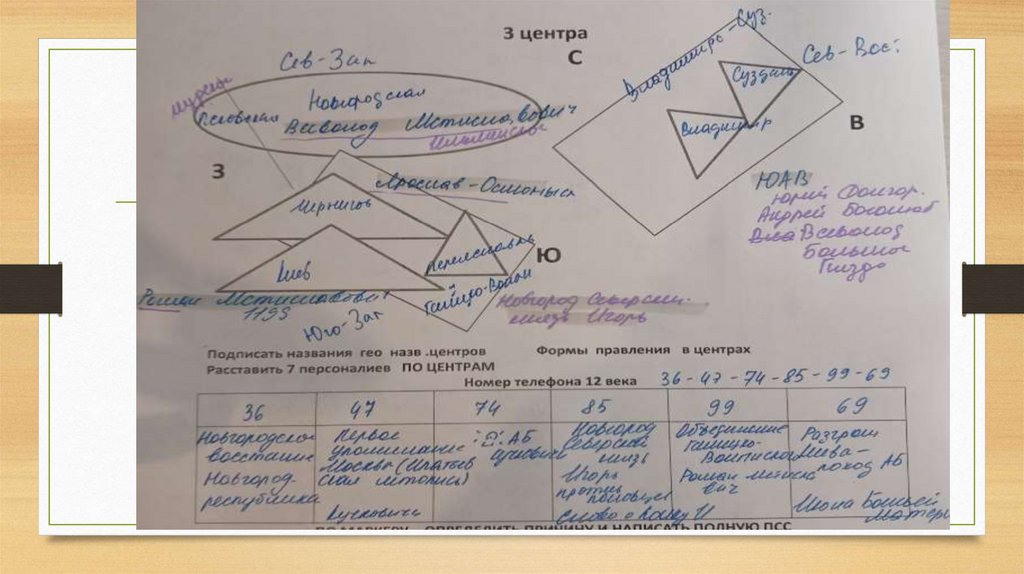 3 центра
С
Сев-Зап
Владимиро-Суз.
Сев-Вос.
Новгородская
Псковская
Всеволод Мстиславович
Суздаль
Владимир
В
З
Ярослав-Осмомысл
ЮАВ
Юрий Долгор.
Андрей Боголюб
Всеволод
Большое
Гнездо
Чернигов
Переславль
Ю
Киев
Галицко-Волын
Роман Мстиславович
1199
Юго-Зап
Новгород Северский
князь Игорь
Подписать названия гео назв .центров Формы правления в центрах
Расставить 7 персоналиев ПО ЦЕНТРАМ
Номер телефона 12 века 36-47-74-85-99-69
36 47 74 85 99 69
Новгородское восстание
Новгород. республика
Первое упоминание Москвы (Ипатьев ская летопись)
Кучковичи
АБ
Новгород Северский князь
Игорь против половцев
Слово о полку И
Объединение Галицко-Волынской
Роман Мстисла вич
Разгром Киева - поход АБ
Икона Божьей Матери
ПО МАРКЕРУ ОПРЕДЕЛИТЬ ПРИЧИНУ И НАПИСАТЬ ПОЛНУЮ ПСС